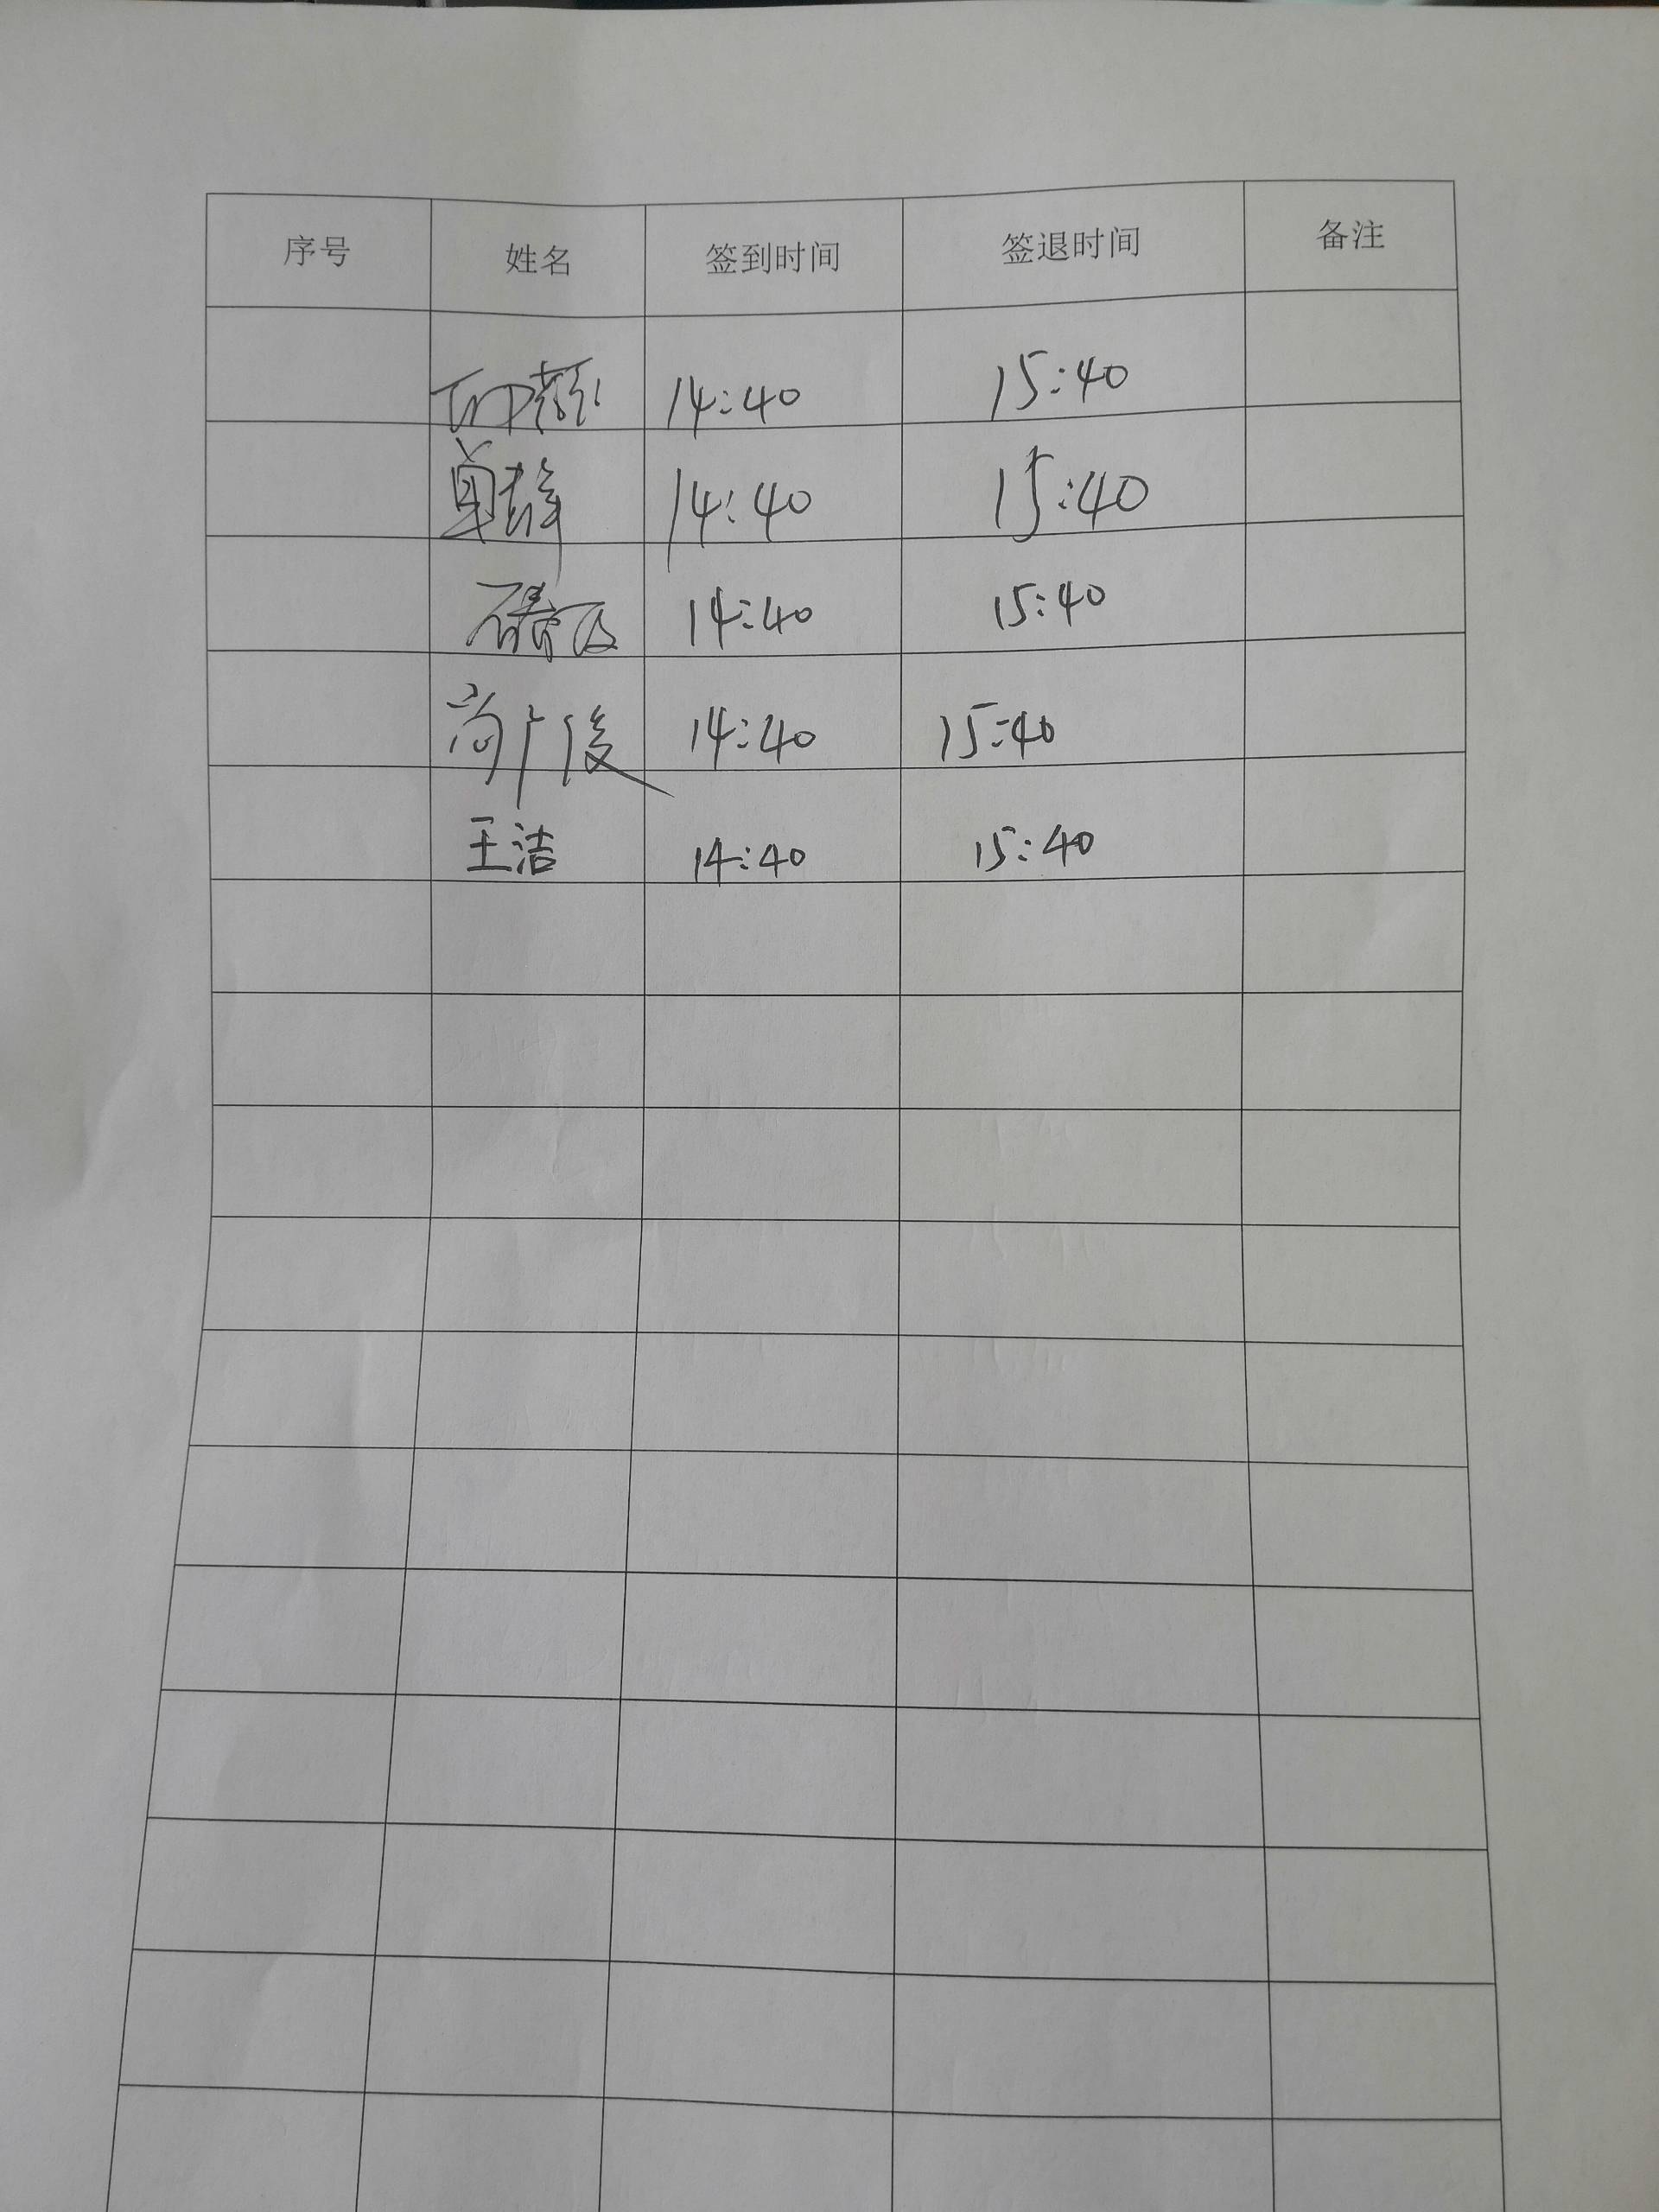 序号 姓名 签到时间 签退时间 备注
14:40 15:40
14:40 15:40
14:40 15:40
尚广俊 14:40 15:40
王洁 14:40 15:40